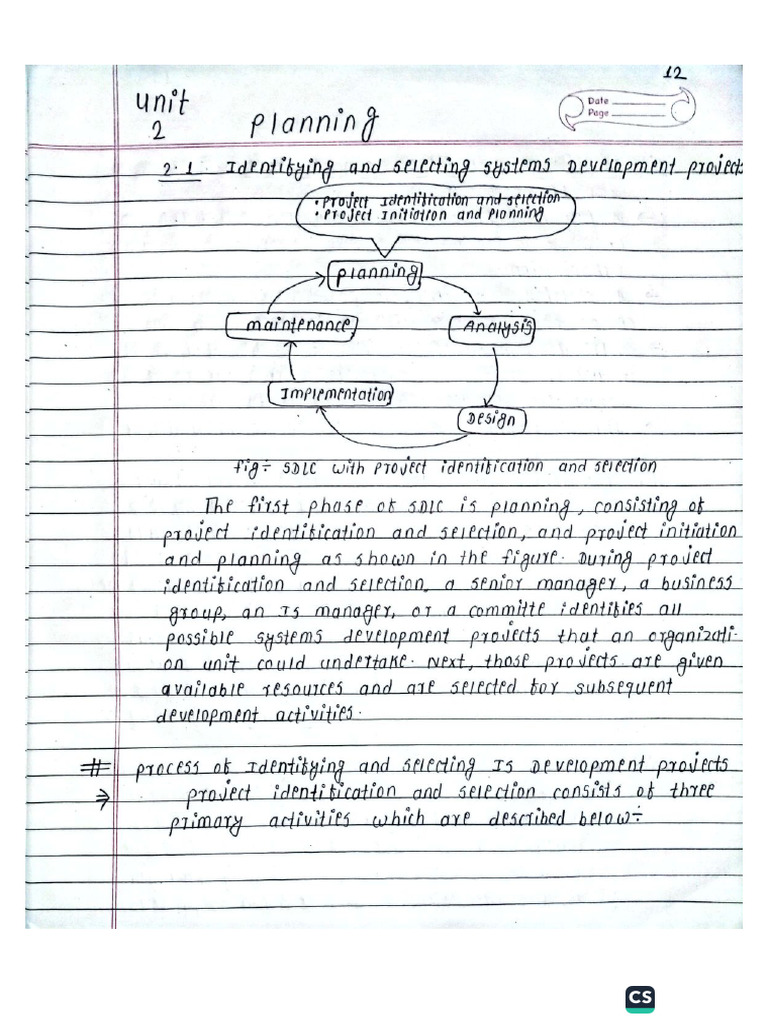 12
Unit
2
Planning
Date
Page
2.1 Identifying and selecting systems Development projects
• Project Identification and selection
• Project Initiation and Planning
Planning
Maintenance
Analysis
Implementation
Design
fig÷ SDLC with project identification and selection
The first phase of SDLC is planning, consisting of
project identification and selection, and project initiation
and planning as shown in the figure. During project
identification and selection, a senior manager, a business
group, an IS manager, or a committe identifies all
possible systems development projects that an organizati-
on unit could undertake. Next, those projects are given
available resources and are selected for subsequent
development activities.
# Process of Identifying and selecting IS Development projects
→ project identification and selection consists of three
primary activities which are described below÷
CS